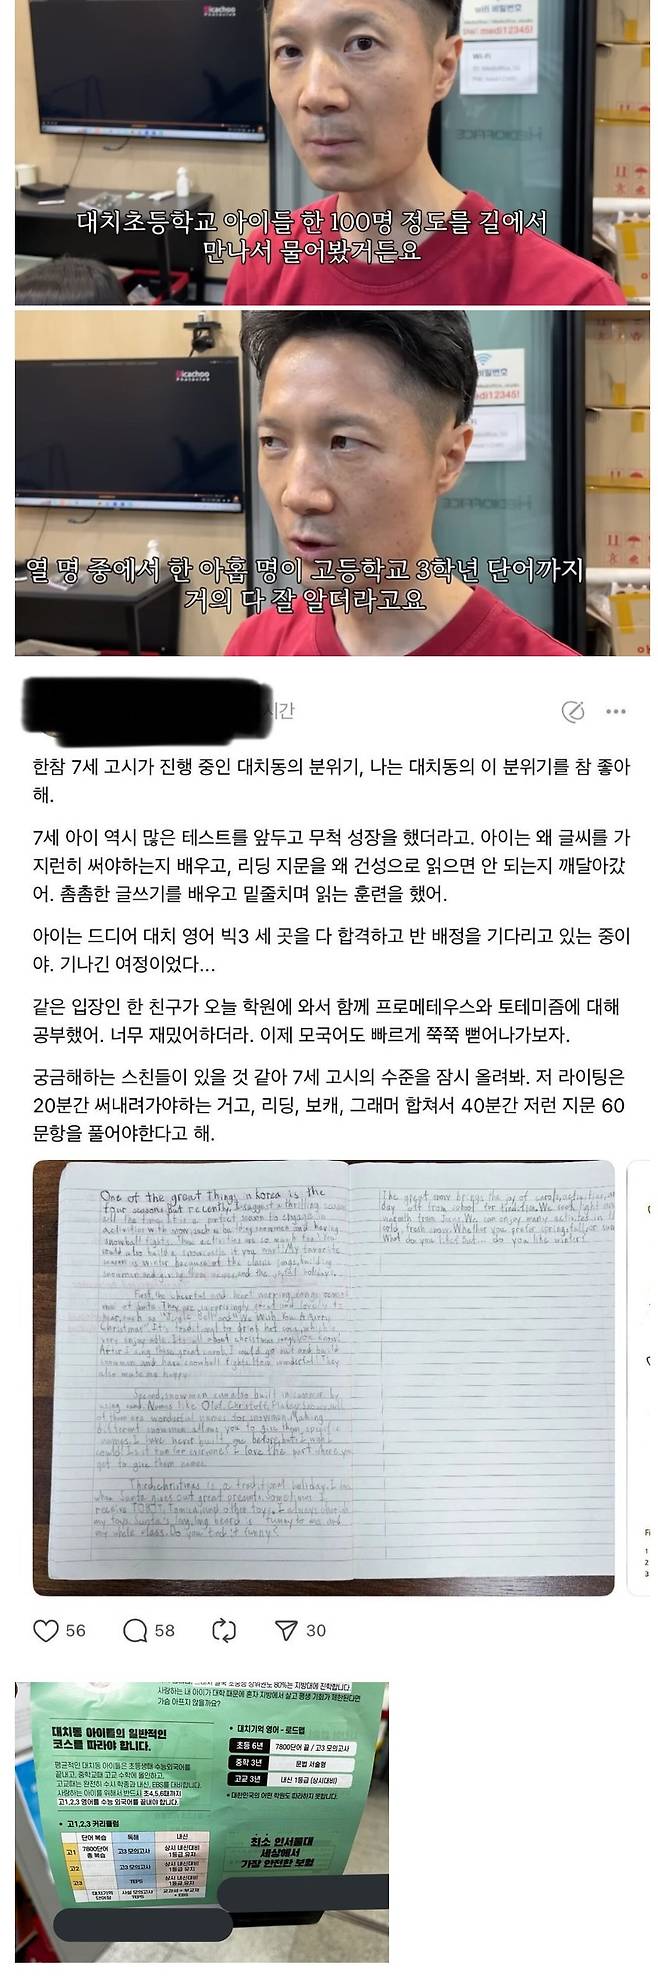 Picachoo
wifi 비밀번호
medi12345!
Wi-Fi
대치초등학교 아이들 한 100명 정도를 길에서
만나서 물어봤거든요
비밀번호
edi12345!
MEDIOFFICE
열 명 중에서 한 아홉 명이 고등학교 3학년 단어까지
거의 다 잘 알더라고요
시간
한참 7세 고시가 진행 중인 대치동의 분위기, 나는 대치동의 이 분위기를 참 좋아
해.
7세 아이 역시 많은 테스트를 앞두고 무척 성장을 했더라고. 아이는 왜 글씨를 가
지런히 써야하는지 배우고, 리딩 지문을 왜 건성으로 읽으면 안 되는지 깨달아갔
어. 촘촘한 글쓰기를 배우고 밑줄치며 읽는 훈련을 했어.
아이는 드디어 대치 영어 빅3 세 곳을 다 합격하고 반 배정을 기다리고 있는 중이
야. 기나긴 여정이었다...
같은 입장인 한 친구가 오늘 학원에 와서 함께 프로메테우스와 토테미즘에 대해
공부했어. 너무 재밌어하더라. 이제 모국어도 빠르게 쭉쭉 뻗어나가보자.
궁금해하는 스친들이 있을 것 같아 7세 고시의 수준을 잠시 올려봐. 저 라이팅은
20분간 써내려가야하는 거고, 리딩, 보캐, 그래머 합쳐서 40분간 저런 지문 60
문항을 풀어야한다고 해.
One of the great things in korea is the
four seasons. But recently, I suggest a thrilling season
snowball fights. These activities are so much fun! You
could also build a snowcastle if you want! My favorite
season is winter because of the classic songs, building
snowman and giving them names and the joyful holidays.
First, the cheerful and heart warping songs remind
me of Santa. They are surprisingly great and lovely to
hear, such as "Jingle Bell" and "We Wish You A Merry
Christmas". It's traditional to drink hot coco, which is
very enjoyable. It's all about christmas songs, you know!
After I sing these great carols, I could go out and build
snowman and have snowball fights. How wonderful! They
also make me happy.
Second, snowmen can also built in summer by
using sand. Names like Olaf, Christoff,
of them are wonderful names for snowman. Making
different snowmen allows you to give them specific
names. I have never built one before, but I wish I
could. Is it fun for everyone? I love the part where you
get to give them names.
Third, christmas is a traditional holiday. I love
when Santa gives out great presents. Sometimes I
receive TOBOT, Tomica, and other toys. I always cherish
my toys. Santa's long, long beard is funny to me and
my whole class. Do you find it funny?
The great snow brings the joy of carols, activities, and
day off from school for tradition. We seek light and
warmth from
cold, fresh snow. Whether you prefer spring, fall, or summer
What do you like? But... do you like winter?
56
58
30
사랑하는 내 아이가 대학 때문에 혼자 지방에서 살고 평생 기회가 제한된다면
가슴 아프지 않을까요?
대치동 아이들의 일반적인
코스를 따라야 합니다.
평균적인 대치동 아이들은 초등생때 수능외국어를
끝내고, 중학교때 고교 수학에 올인하고,
고교때는 완전히 수시 학종과 내신, EBS를 대비합니다.
사랑하는 아이를 위해서 반드시 초4,5,6때까지
고1,2,3 영어를 수능 외국어를 끝내야 합니다.
• 대치기억 영어 - 로드맵
초등 6년 7800단어 끝 / 고3 모의고사
중학 3년 문법 서술형
고교 3년 내신 1등급 (상시대비)
* 대한민국의 어떤 학원도 따라하지 못합니다.
• 고1,2,3 커리큘럼
단어 복습 독해 내신
고1 7800단어 총 복습 고3 모의고사 상시 내신대비 1등급 유지
고2 고3 모의고사 상시 내신대비 1등급 유지
고3 TEPS 상시 내신대비 1등급 유지
대치기억 단어장 사설 모의고사 TEPS 교과서 + 부교재 + EBS
최소 인서울대
세상에서
가장 안전한 보험